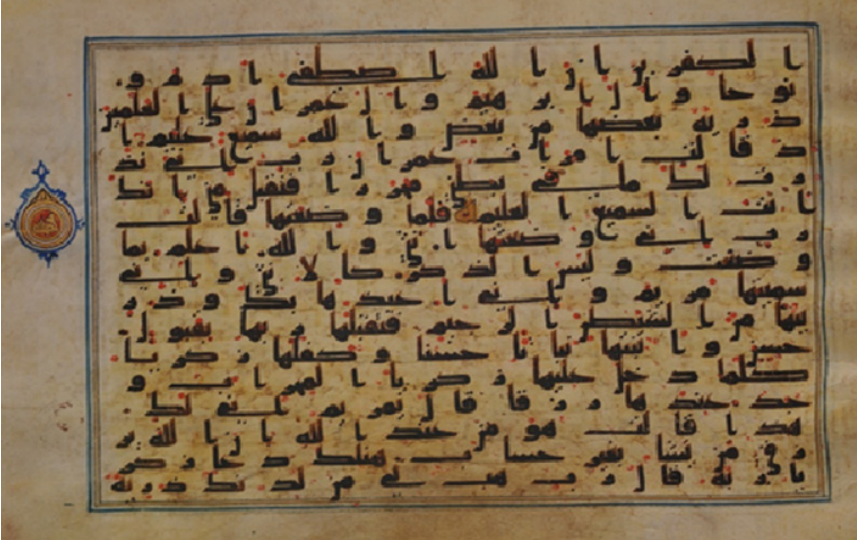 الكفرين ان الله اصطفى ادم و
نوحا وال ابرهيم وال عمران على العلمين
ذرية بعضها من بعض والله سميع عليم ا
ذ قالت امرات عمران رب انى نذ
رت لك ما فى بطنى محررا فتقبل منى انك
انت السميع العليم فلما وضعتها قالت
رب انى وضعتها انثى والله اعلم بما
وضعت وليس الذكر كالانثى وانى
سميتها مريم وانى اعيذها بك وذر
يتها من الشيطن الرجيم فتقبلها ربها بقبول
حسن وانبتها نباتا حسنا وكفلها زكريا
كلما دخل عليها زكريا المحراب و
جد عندها رزقا قال يمريم انى لك
هذا قالت هو من عند الله ان الله ير
زق من يشا بغير حساب هنلك دعا زكر
يا ربه قال رب هب لى من لدنك ذرية